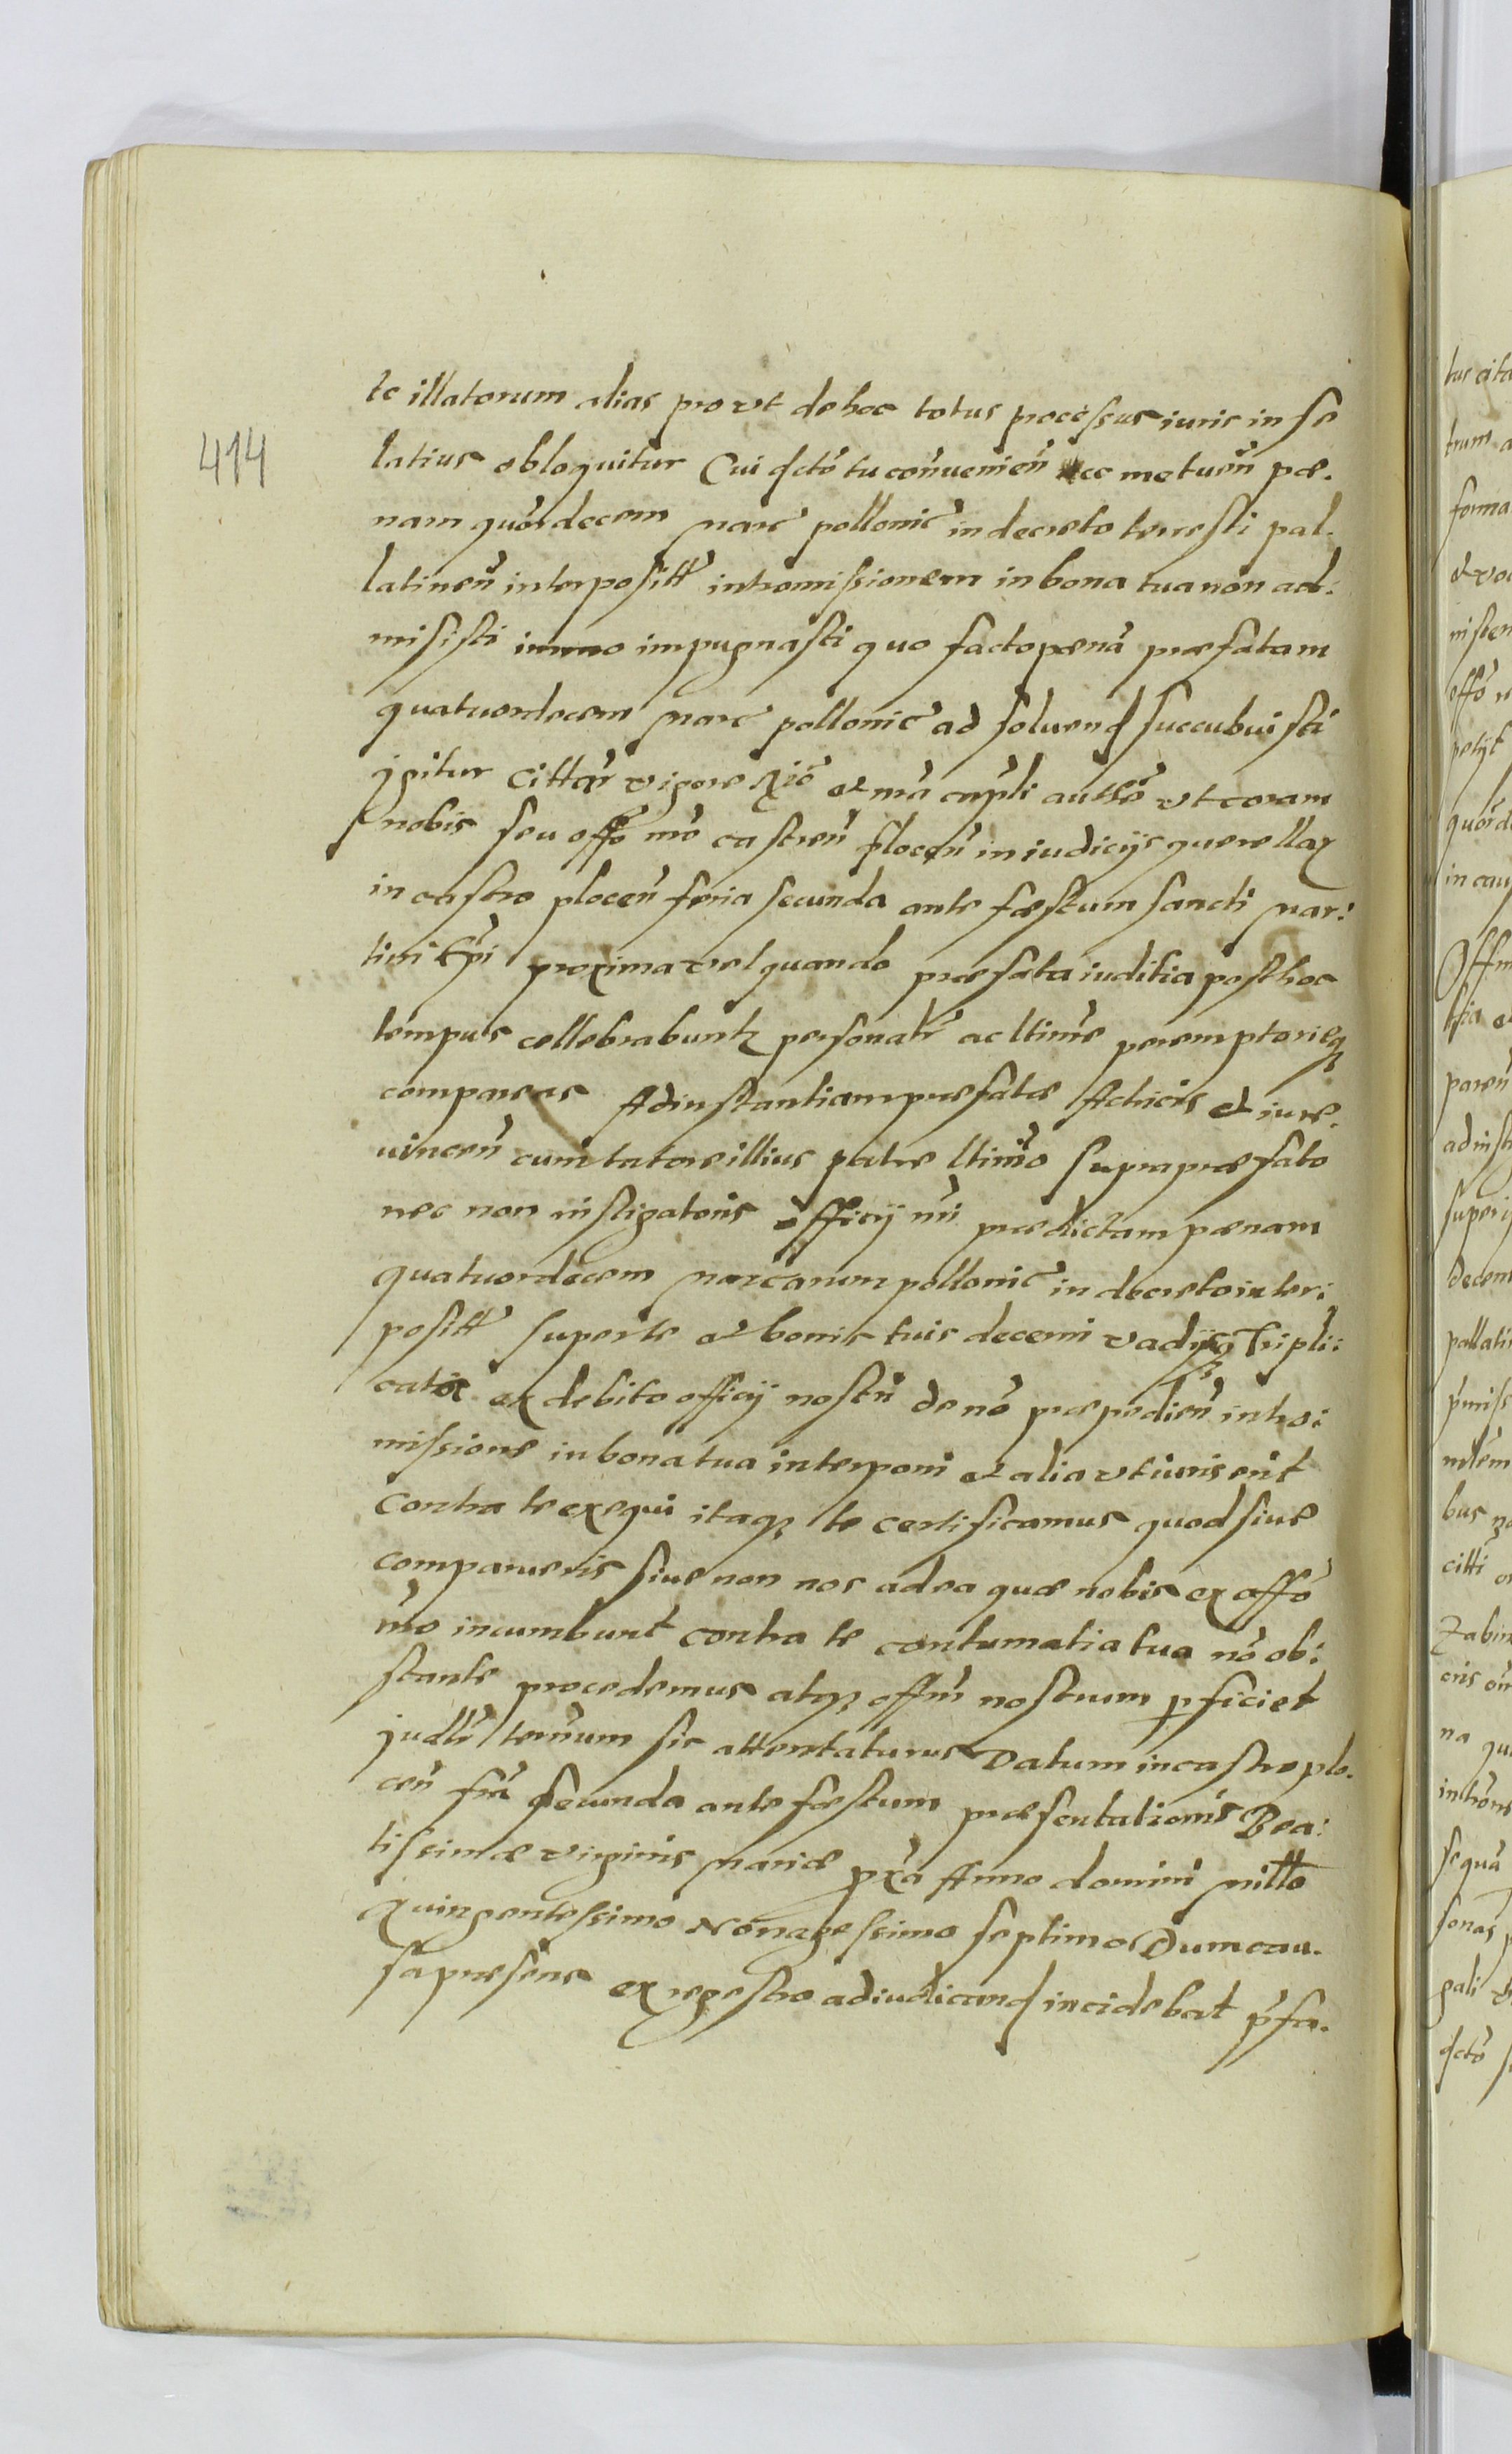 414
te illatorum alias pro vt de hoc totus processus iuris in se
latius obloquitur Cui dctō tu conuenieñ nec metueñ pœ.
nam quordecem marc̃ pollonic̃ in decreto terresti pal.
latineñ interpositt intromissionem in bona tua non ad:
misisti immo impugnasti quo facto pœnã præfatam
quatuordecem marc̃ pollonic̃ ad soluend succubuisti
igitur Citt vigore et nrã capli authẽ vt coram
nobis seu offõ nrõ castreñ ploceñ in iudicijs querellaꝝ
in castro ploceñ feria secunda ante fæstum sancti mar:
tini Epi proxima vel quando præfata iuditia post hoc
tempus cellebrabuntꝛ personalr ac ltime peremptorieqꝫ
compareas Ad instantiam præfatæ Actricis et iure.
uinceñ cum tutore illius patre ltimo supra præfato
nec non instigatoris officij nri prædictam pœnam
quatuordecem marcarum pollonic̃ in decreto inter:
positt super te et bonis tuis decerni vadijsqꝫ tripli:
catis ex debito officij nostri de nõ præpedieñ intro:
missione in bona tua interponi et alia vt iuris erit
contra te exequi itaqꝫ te certificamus quod siue
comparueris siue non nos ad ea quæ nobis ex offõ
nrõ incumbunt contra te contumatia tua nõ ob:
stante procedemus atqꝫ offm nostrum ꝑficiet
judlr termum sic attentaturus Datum in castro plo.
ceñ frã secunda ante fæstum præsentationis Bea:
tissimæ virginis mariæ pxã Anno domini millo
quingentessimo Nonagessimo septimo Dum cau.
sa præsens ex regestro adiudicand incidebat p̃fa.